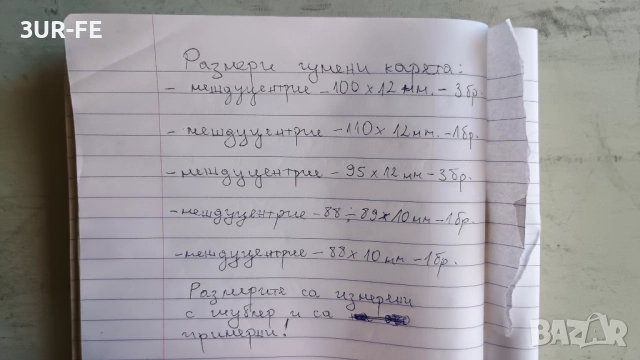 3UR-FE
Размери гумени карета:
- междуцентрие - 100 x 12 мм. - 3бр.
- междуцентрие - 110 x 12мм. - 1бр.
- междуцентрие - 95 x 12 мм - 3бр.
- междуцентрие - 88 ÷ 89 x 10 мм - 1бр.
- междуцентрие - 88 x 10 мм - 1бр.
Размерите са измерени
с шублер и са
примерни!
BAZAR